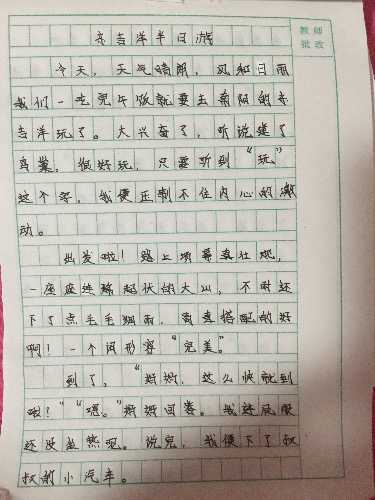 齐吉洋半日游
教师
批改
今天，天气晴朗，风和日丽
我们一吃完午饭就要去南阳的齐
吉洋玩了。大兴奋了，听说建了
鸟巢，很好玩，只要听到“玩”
这个字，我便控制不住内心的激
动。
出发啦！路上场景真壮观，
一座座连绵起伏的大山，不时还
下了点毛毛细雨，简直搭配的好
啊！一个词形容“完美”。
到了，“妈妈，这么快就到
啦？”“嗯。”妈妈回答。我
还没显然呢。说完，我便下了叔
叔的小汽车。